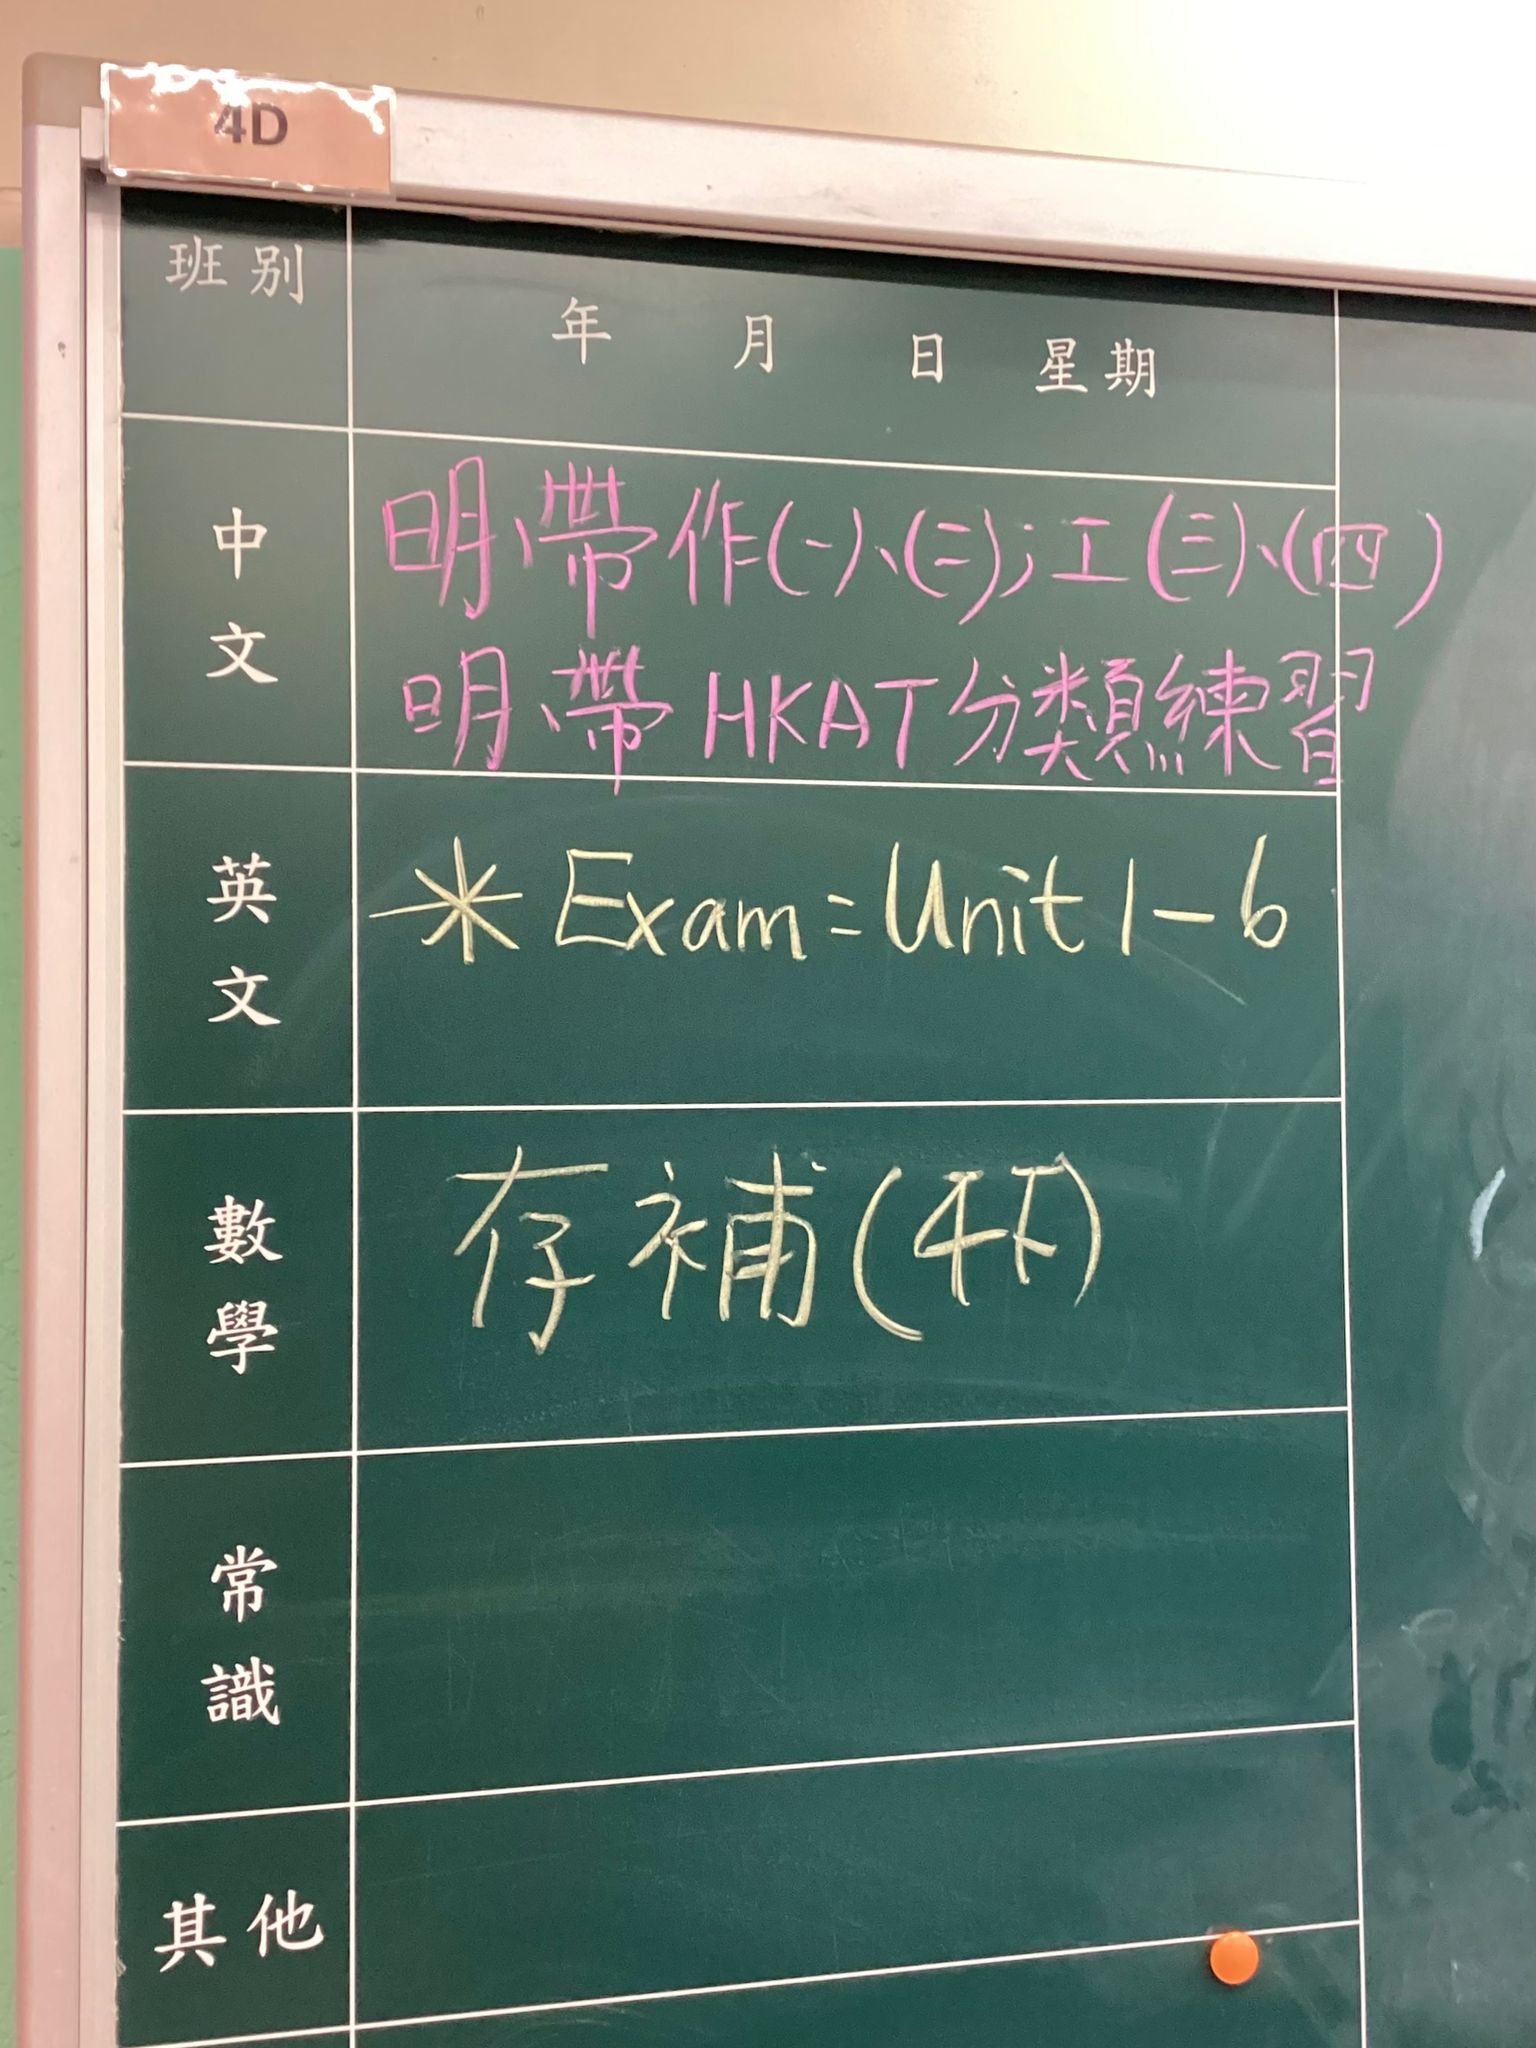 4D
班別
年 月 日 星期
中文
明、帶作(一)、(二)；工(三)、(四)
明、帶HKAT分類練習
英文
* Exam = Unit 1-6
數學
存補(4下)
常識
其他